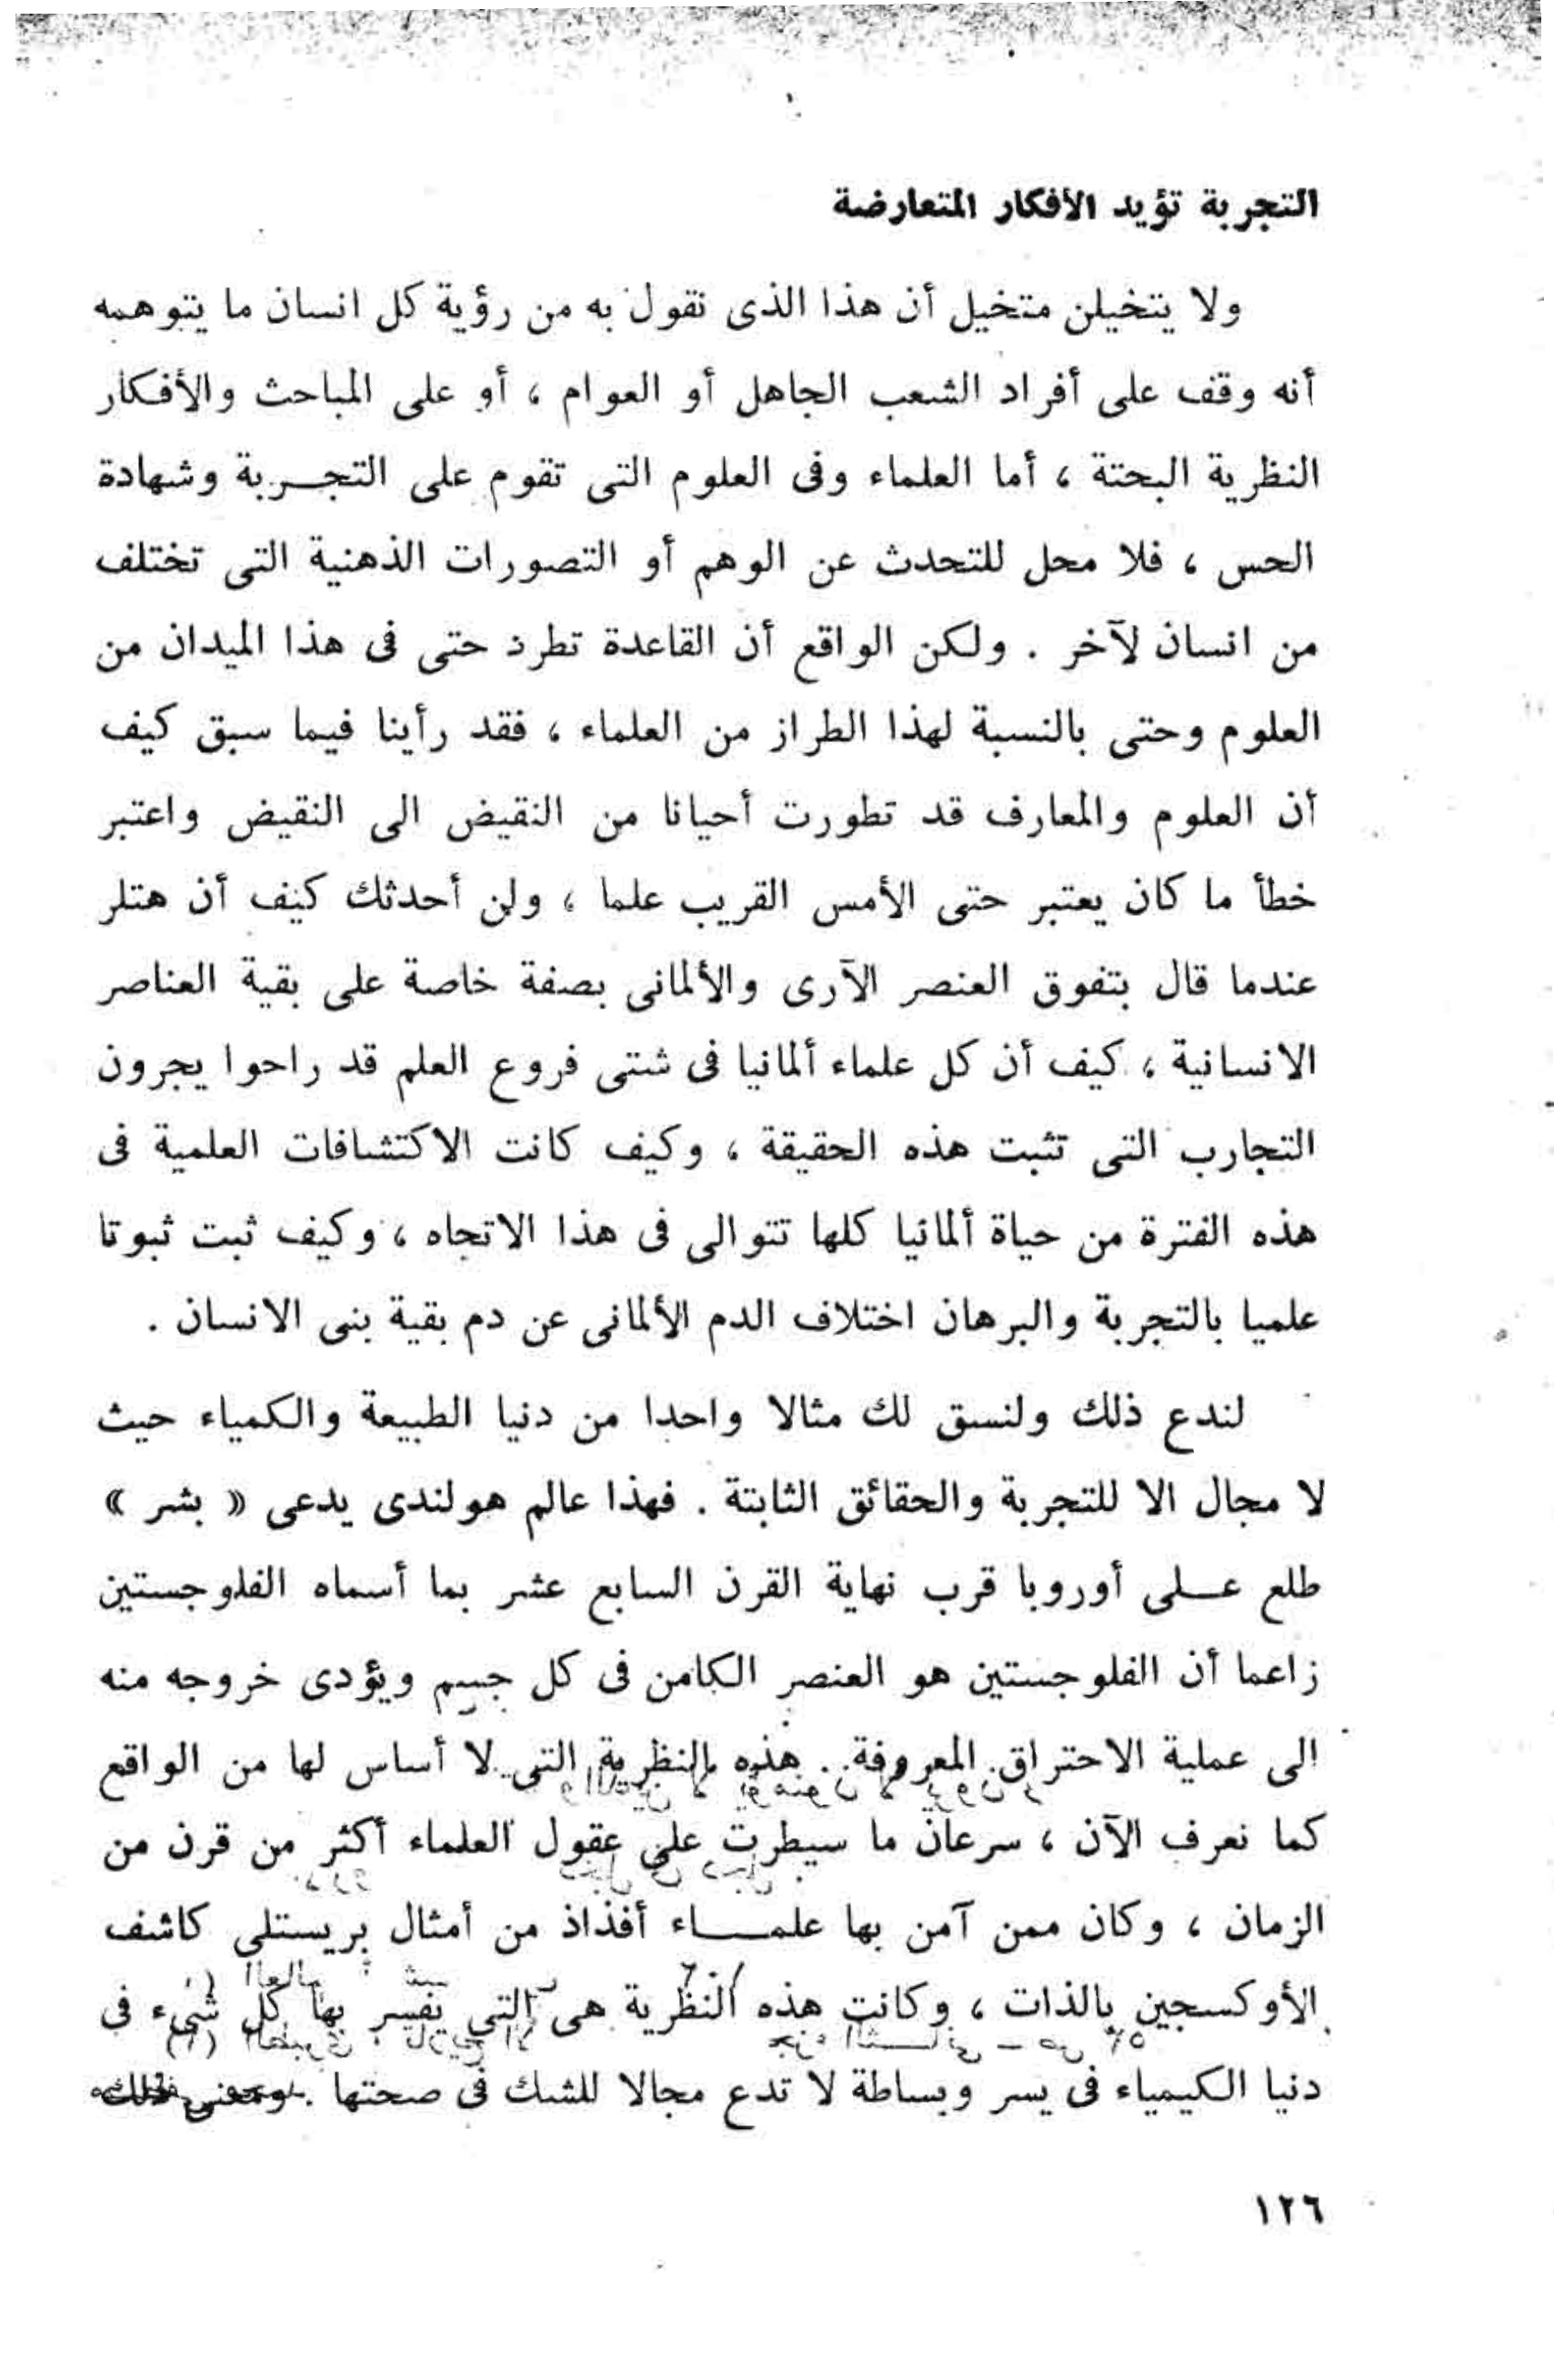 التجربة تؤيد الأفكار المتعارضة
ولا يتخيلن متخيل أن هذا الذى نقول به من رؤية كل انسان ما يتوهمه
أنه وقف على أفراد الشعب الجاهل أو العوام ، أو على المباحث والأفكار
النظرية البحتة ، أما العلماء وفى العلوم التى تقوم على التجربة وشهادة
الحس ، فلا محل للتحدث عن الوهم أو التصورات الذهنية التى تختلف
من انسان لآخر . ولكن الواقع أن القاعدة تطرد حتى فى هذا الميدان من
العلوم وحتى بالنسبة لهذا الطراز من العلماء ، فقد رأينا فيما سبق كيف
أن العلوم والمعارف قد تطورت أحيانا من النقيض الى النقيض واعتبر
خطأ ما كان يعتبر حتى الأمس القريب علما ، ولن أحدثك كيف أن هتلر
عندما قال بتفوق العنصر الآرى والألمانى بصفة خاصة على بقية العناصر
الانسانية ، كيف أن كل علماء ألمانيا فى شتى فروع العلم قد راحوا يجرون
التجارب التى تثبت هذه الحقيقة ، وكيف كانت الاكتشافات العلمية فى
هذه الفترة من حياة ألمانيا كلها تتوالى فى هذا الاتجاه ، وكيف ثبت ثبوتا
علميا بالتجربة والبرهان اختلاف الدم الألمانى عن دم بقية بنى الانسان .
لندع ذلك ولنسق لك مثالا واحدا من دنيا الطبيعة والكمياء حيث
لا مجال الا للتجربة والحقائق الثابتة . فهذا عالم هولندى يدعى « بشر »
طلع على أوروبا قرب نهاية القرن السابع عشر بما أسماه الفلوجستين
زاعما أن الفلوجستين هو العنصر الكامن فى كل جسم ويؤدى خروجه منه
الى عملية الاحتراق المعروفة . هذه النظرية التى لا أساس لها من الواقع
كما نعرف الآن ، سرعان ما سيطرت على عقول العلماء أكثر من قرن من
الزمان ، وكان ممن آمن بها علماء أفذاذ من أمثال بريستلى كاشف
الأوكسجين بالذات ، وكانت هذه النظرية هى التى يفسر بها كل شىء فى
دنيا الكيمياء فى يسر وبساطة لا تدع مجالا للشك فى صحتها . ومعنى ذلك
١٢٦